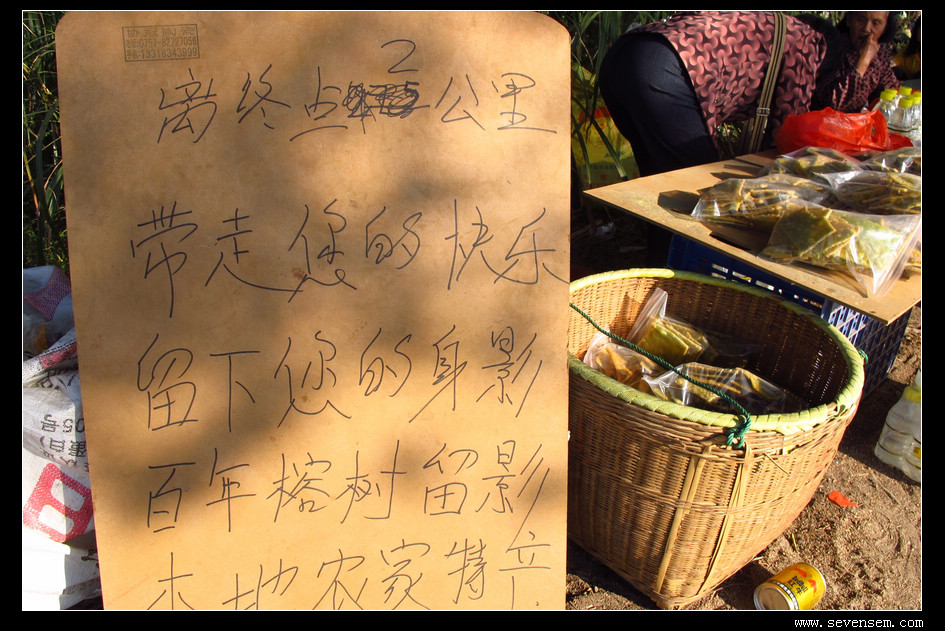 离终点2公里
带走您的快乐
留下您的身影
百年榕树留影
本地农家特产
www.sevensem.com